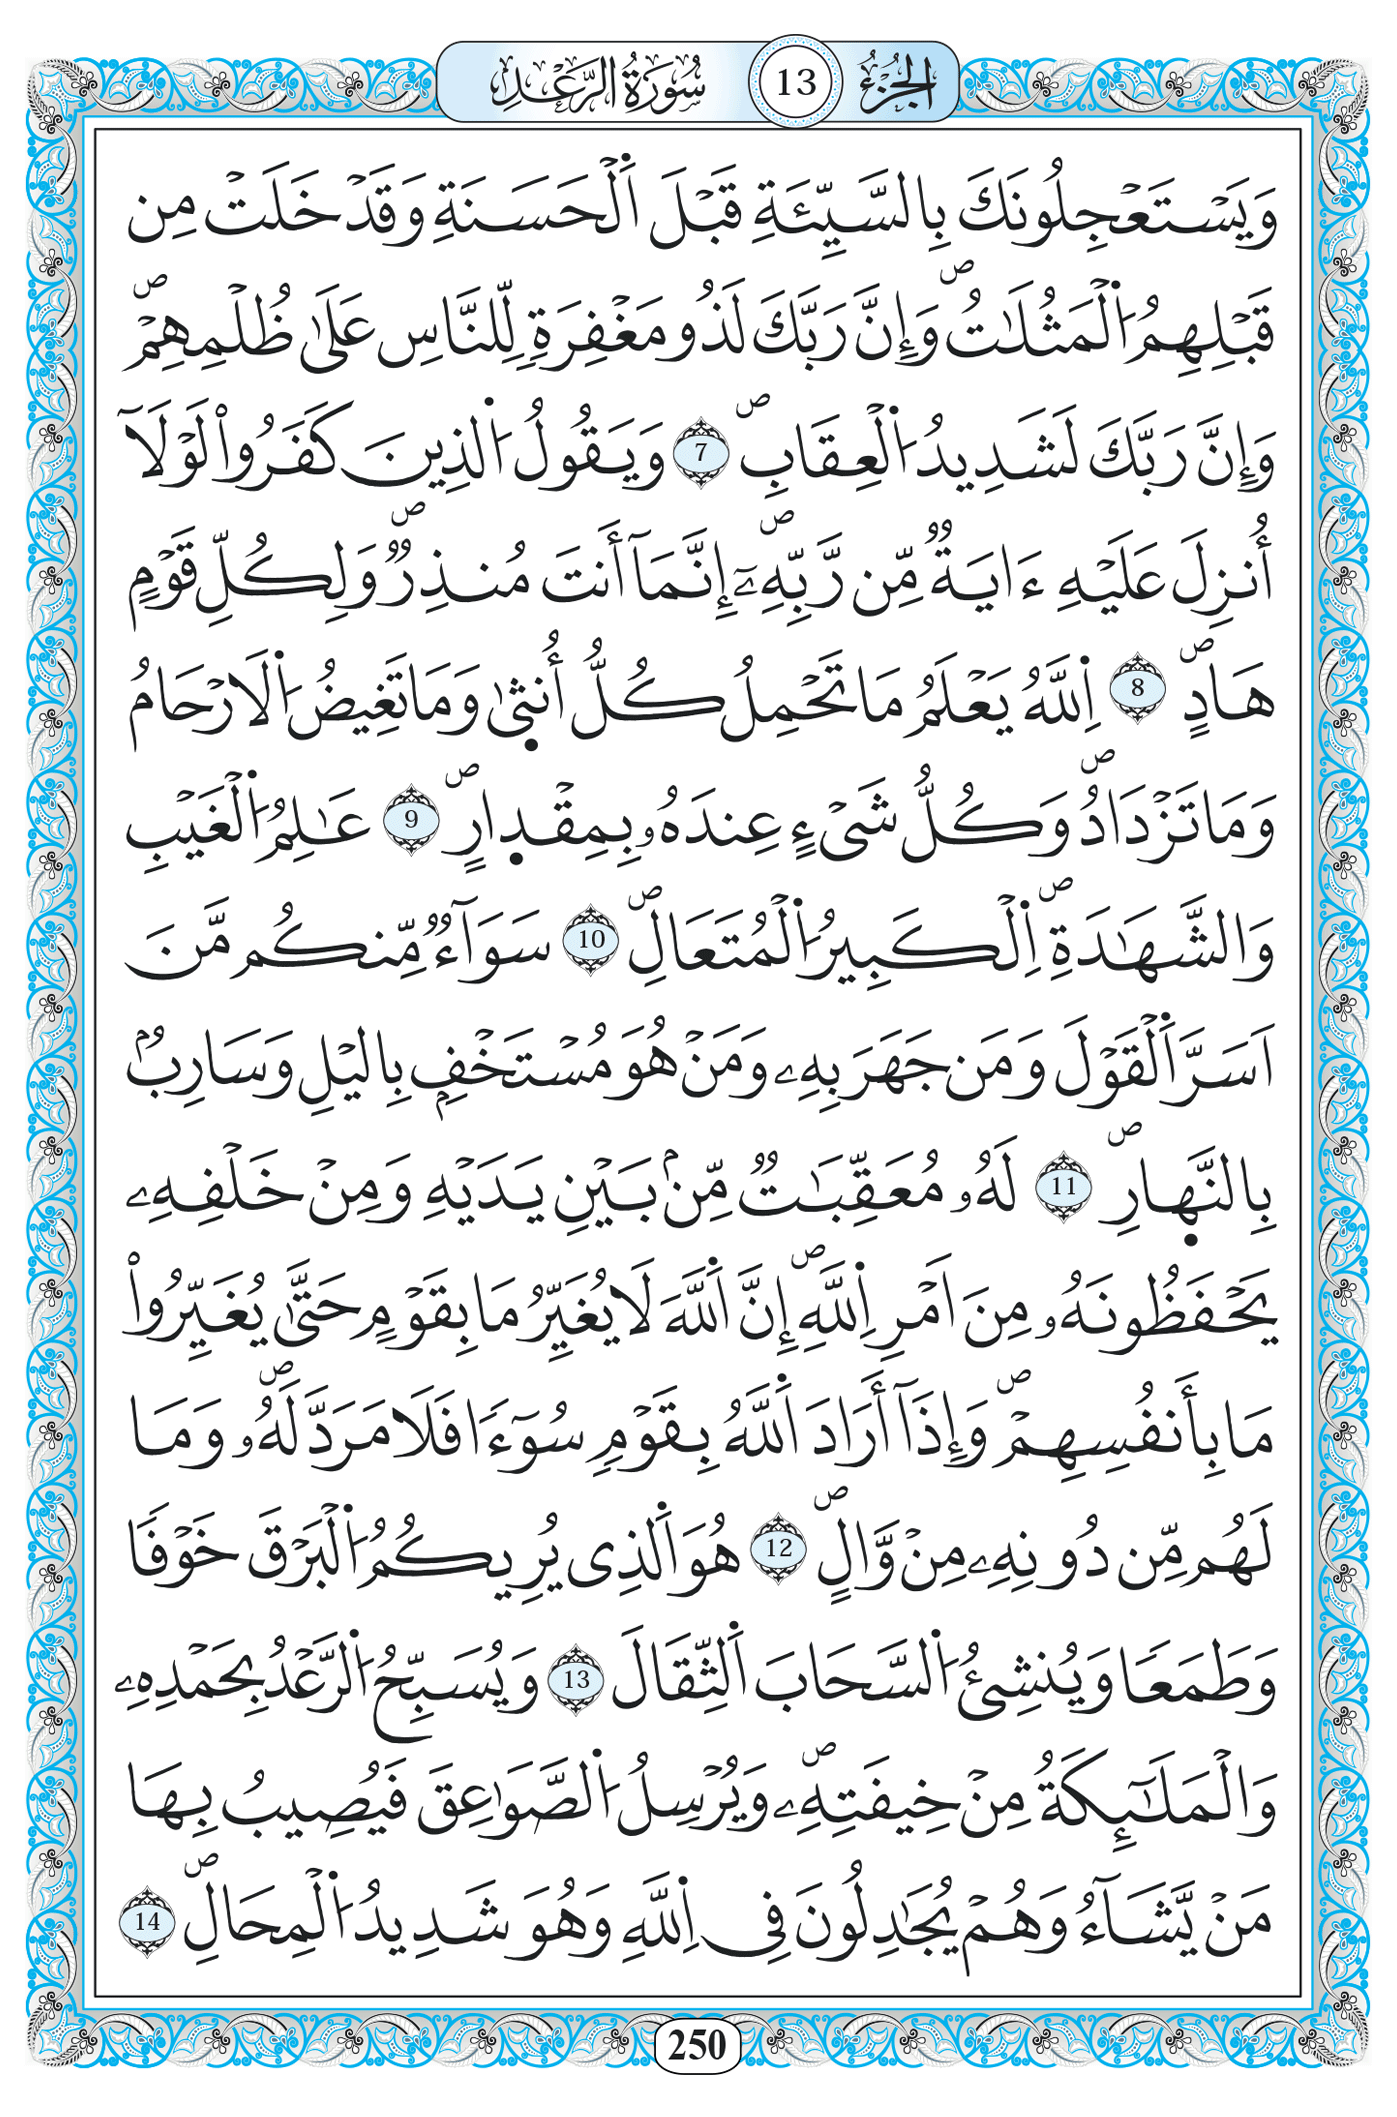 الجُزْءُ 13 سُورَةُ الرَّعْدِ
وَيَسْتَعْجِلُونَكَ بِالسَّيِّئَةِ قَبْلَ اَ۬لْحَسَنَةِ وَقَدْ خَلَتْ مِن
قَبْلِهِمُ اُ۬لْمَثُلَٰتُۖ وَإِنَّ رَبَّكَ لَذُو مَغْفِرَةٖ لِّلنَّاسِ عَلَىٰ ظُلْمِهِمْۖ
وَإِنَّ رَبَّكَ لَشَدِيدُ اُ۬لْعِقَابِۖ 7 وَيَقُولُ اُ۬لذِينَ كَفَرُواْ لَوْلَآ
أُنزِلَ عَلَيْهِ ءَايَةٞ مِّن رَّبِّهِۦٓۖ إِنَّمَآ أَنتَ مُنذِرٞۖ وَلِكُلِّ قَوْمٍ
هَادٍۖ 8 اِ۬للَّهُ يَعْلَمُ مَا تَحْمِلُ كُلُّ أُنثۭىٰ وَمَا تَغِيضُ اُ۬لَارْحَامُ
وَمَا تَزْدَادُۖ وَكُلُّ شَےْءٍ عِندَهُۥ بِمِقْدٜارٍۖ 9 عَٰلِمُ اُ۬لْغَيْبِ
وَالشَّهَٰدَةِۖ اِ۬لْكَبِيرُ اُ۬لْمُتَعَالِۖ 10 سَوَآءٞ مِّنكُم مَّنَ
اَسَرَّ اَ۬لْقَوْلَ وَمَن جَهَرَ بِهِۦ وَمَنْ هُوَ مُسْتَخْفِۢ بِاليْلِ وَسَارِبُۢ
بِالنَّهٜارِۖ 11 لَهُۥ مُعَقِّبَٰتٞ مِّنۢ بَيْنِ يَدَيْهِ وَمِنْ خَلْفِهِۦ
يَحْفَظُونَهُۥ مِنَ اَمْرِ اِ۬للَّهِۖ إِنَّ اَ۬للَّهَ لَا يُغَيِّرُ مَا بِقَوْمٍ حَتَّىٰ يُغَيِّرُواْ
مَا بِأَنفُسِهِمْۖ وَإِذَآ أَرَادَ اَ۬للَّهُ بِقَوْمٖ سُوٓءاٗ فَلَا مَرَدَّ لَهُۥۖ وَمَا
لَهُم مِّن دُونِهِۦ مِنْ وَّالٍۖ 12 هُوَ اَ۬لذِے يُرِيكُمُ اُ۬لْبَرْقَ خَوْفاٗ
وَطَمَعاٗ وَيُنشِئُ اُ۬لسَّحَابَ اَ۬لثِّقَالَ 13 وَيُسَبِّحُ اُ۬لرَّعْدُ بِحَمْدِهِۦ
وَالْمَلَٰٓئِكَةُ مِنْ خِيفَتِهِۦۖ وَيُرْسِلُ اُ۬لصَّوَٰعِقَ فَيُصِيبُ بِهَا
مَنْ يَّشَآءُ وَهُمْ يُجَٰدِلُونَ فِے اِ۬للَّهِ وَهُوَ شَدِيدُ اُ۬لْمِحَالِۖ 14
250